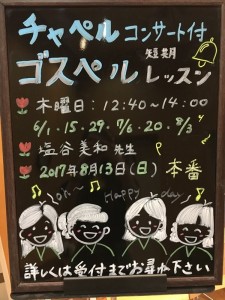 チャペル コンサート付
短期
ゴスペル レッスン
木曜日：12:40～14:00
6/1・15・29・7/6・20・8/3
塩谷美和 先生
2017年8月13日(日) 本番
oh~ Happy day
詳しくは受付までお尋ね下さい